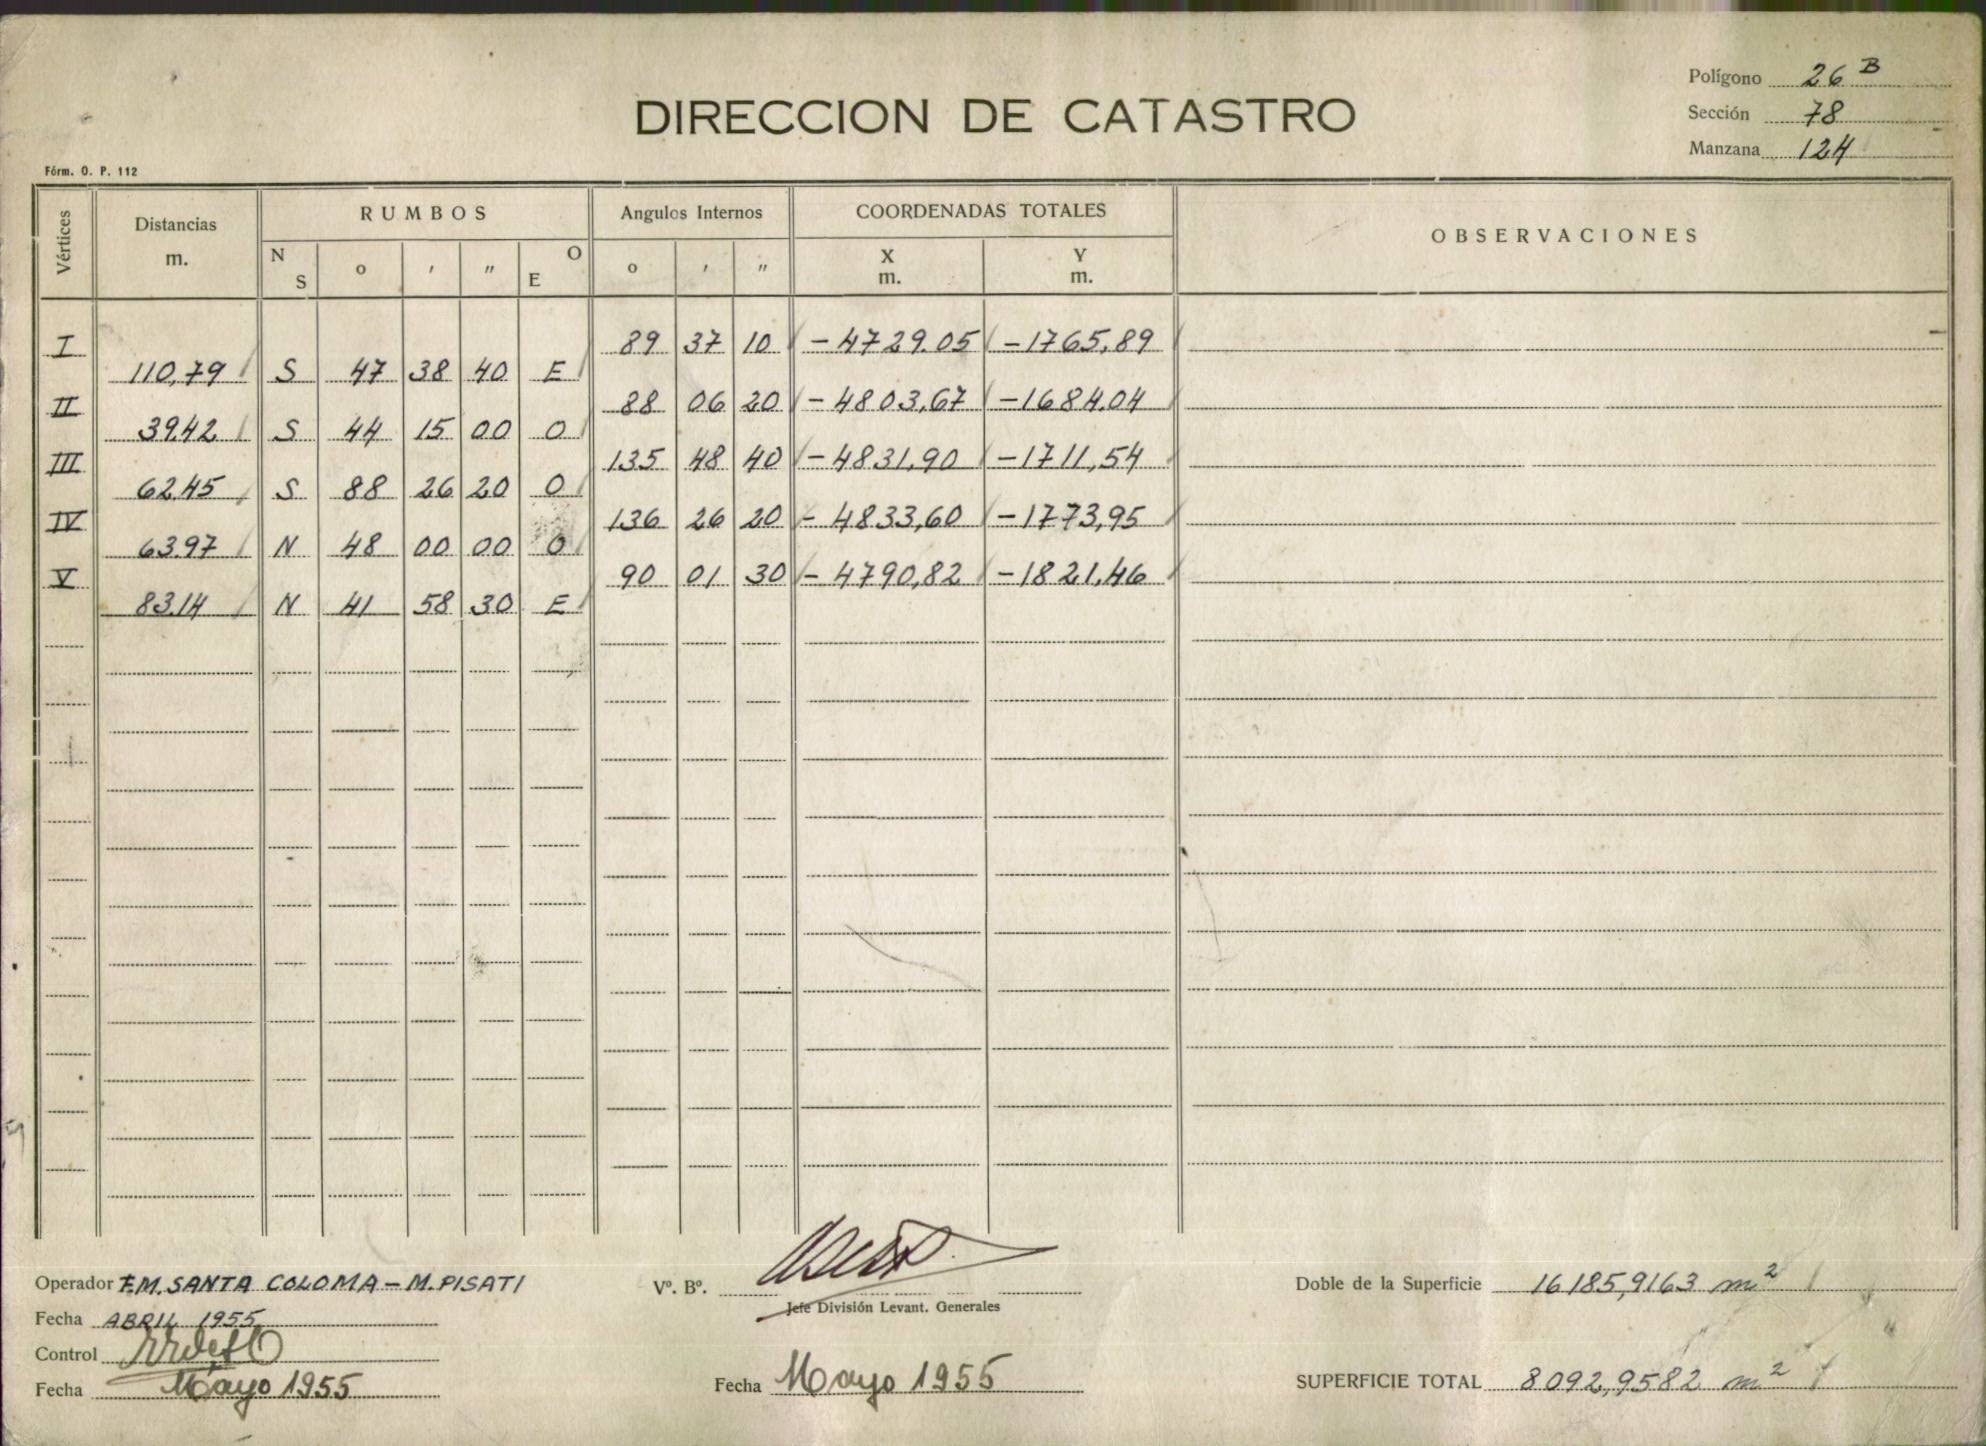 Polígono 26 B
DIRECCION DE CATASTRO
Sección 78
Manzana 124
Fórm. O. P. 112
Vértices Distancias m. RUMBOS Angulos Internos COORDENADAS TOTALES OBSERVACIONES
N S o ' " O E o ' " X m. Y m.
I 89 37 10 -4729.05 -1765,89
110,79 S 47 38 40 E
II 88 06 20 -4803,67 -1684.04
39.42 S 44 15 00 O
III 135 48 40 -4831,90 -1711,54
62.45 S 88 26 20 O
IV 136 26 20 -4833,60 -1773,95
63.97 N 48 00 00 O
V 90 01 30 -4790,82 -1821,46
83.14 N 41 58 30 E
Operador F.M. SANTA COLOMA - M. PISATI Vº. Bº. Doble de la Superficie 16185,9163 m2
Jefe División Levant. Generales
Fecha ABRIL 1955
Control
Fecha Mayo 1955 Fecha Mayo 1955 SUPERFICIE TOTAL 8092,9582 m2